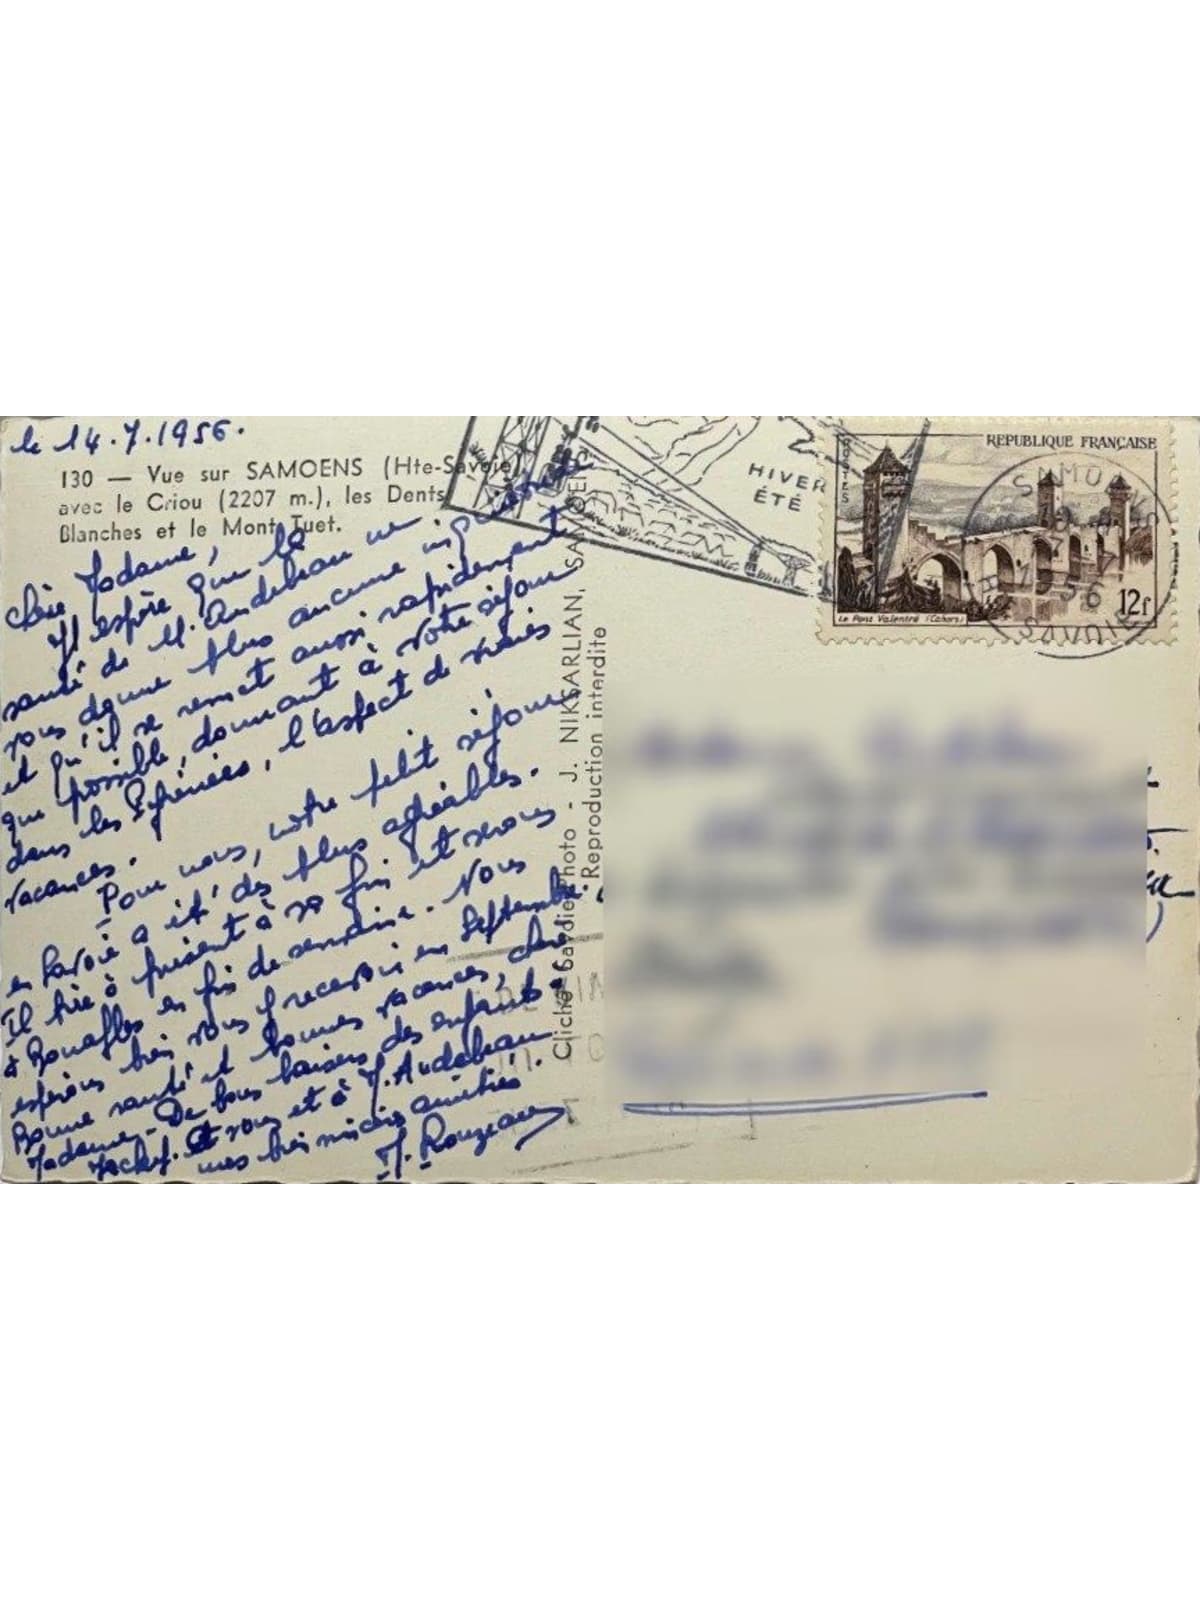 le 14.7.1956.
130 — Vue sur SAMOENS (Hte-Savoie)
avec le Criou (2207 m.), les Dents
Blanches et le Mont Tuet.
Chère Madame,
J'espère que la
santé de M. Audebeau ne
vous donne plus aucune inquiétude
et qu'il se remet aussi rapidement
que possible, donnant à votre séjour
dans les Pyrénées, l'aspect de vraies
vacances.
Pour nous, notre petit séjour
en Savoie a été des plus agréables.
Il tire à présent à sa fin et serons
à Bouafles en fin de semaine. Nous
espérons bien vous recevoir en Septembre.
Bonne santé et bonnes vacances, chère
Madame. De bons baisers des enfants
Jacky. Et vous et à M. Audebeau
mes très sincères amitiés.
J. Rouzeau
Cliché Gardiol Photo - J. NIKSARLIAN, SAMOENS
Reproduction interdite
HIVER
ÉTÉ
POSTES
REPUBLIQUE FRANÇAISE
Le Pont Valentré (Cahors)
12f
SAMOENS
1956
SAVOIE